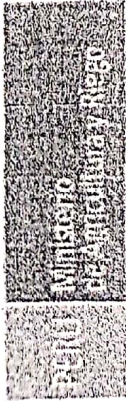 PERÚ
Ministerio
de Agricultura y Riego